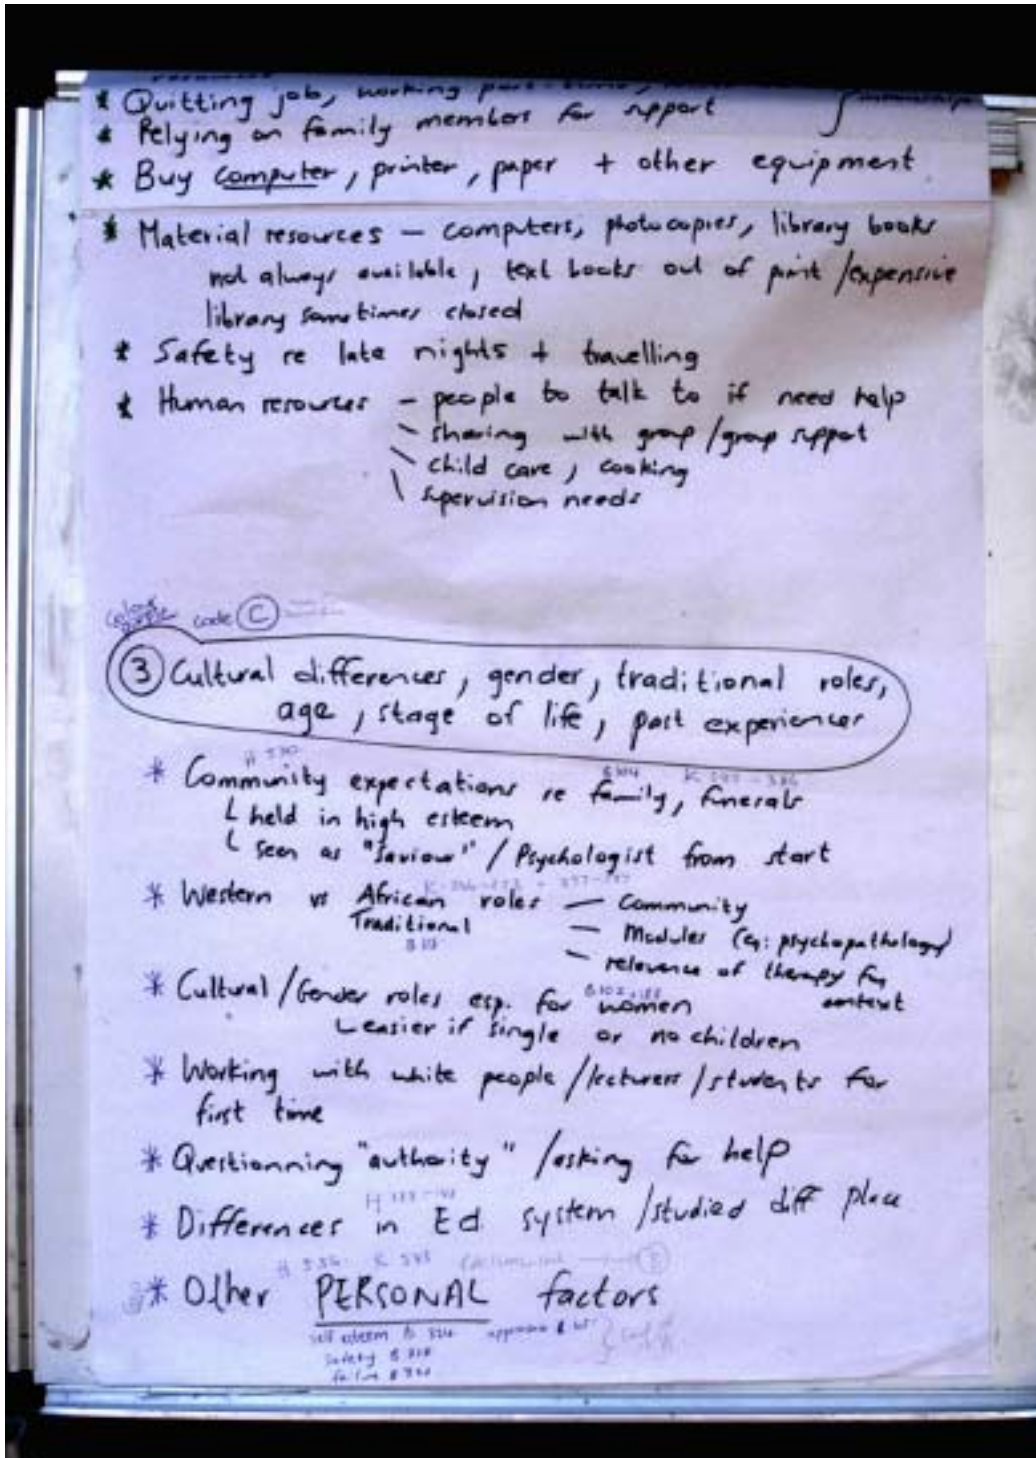 * Quitting job, working part-time,
* Relying on family members for support
* Buy computer, printer, paper + other equipment
* Material resources — computers, photocopies, library books
not always available, text books out of print /expensive
library sometimes closed
* Safety re late nights + travelling
* Human resources - people to talk to if need help
- sharing with group /group support
- child care, cooking
\ supervision needs
code C
3 Cultural differences, gender, traditional roles,
age, stage of life, past experiences
* Community expectations re family, funerals
L held in high esteem
L seen as "saviour" / Psychologist from start
* Western vs African roles — Community
Traditional — Modules (eg: psychopathology)
- relevance of therapy for
context
* Cultural /Gender roles esp. for women
L easier if single or no children
* Working with white people /lecturers /students for
first time
* Questionning "authority" /asking for help
* Differences in Ed system /studied diff place
* Other PERSONAL factors
self esteem
safety